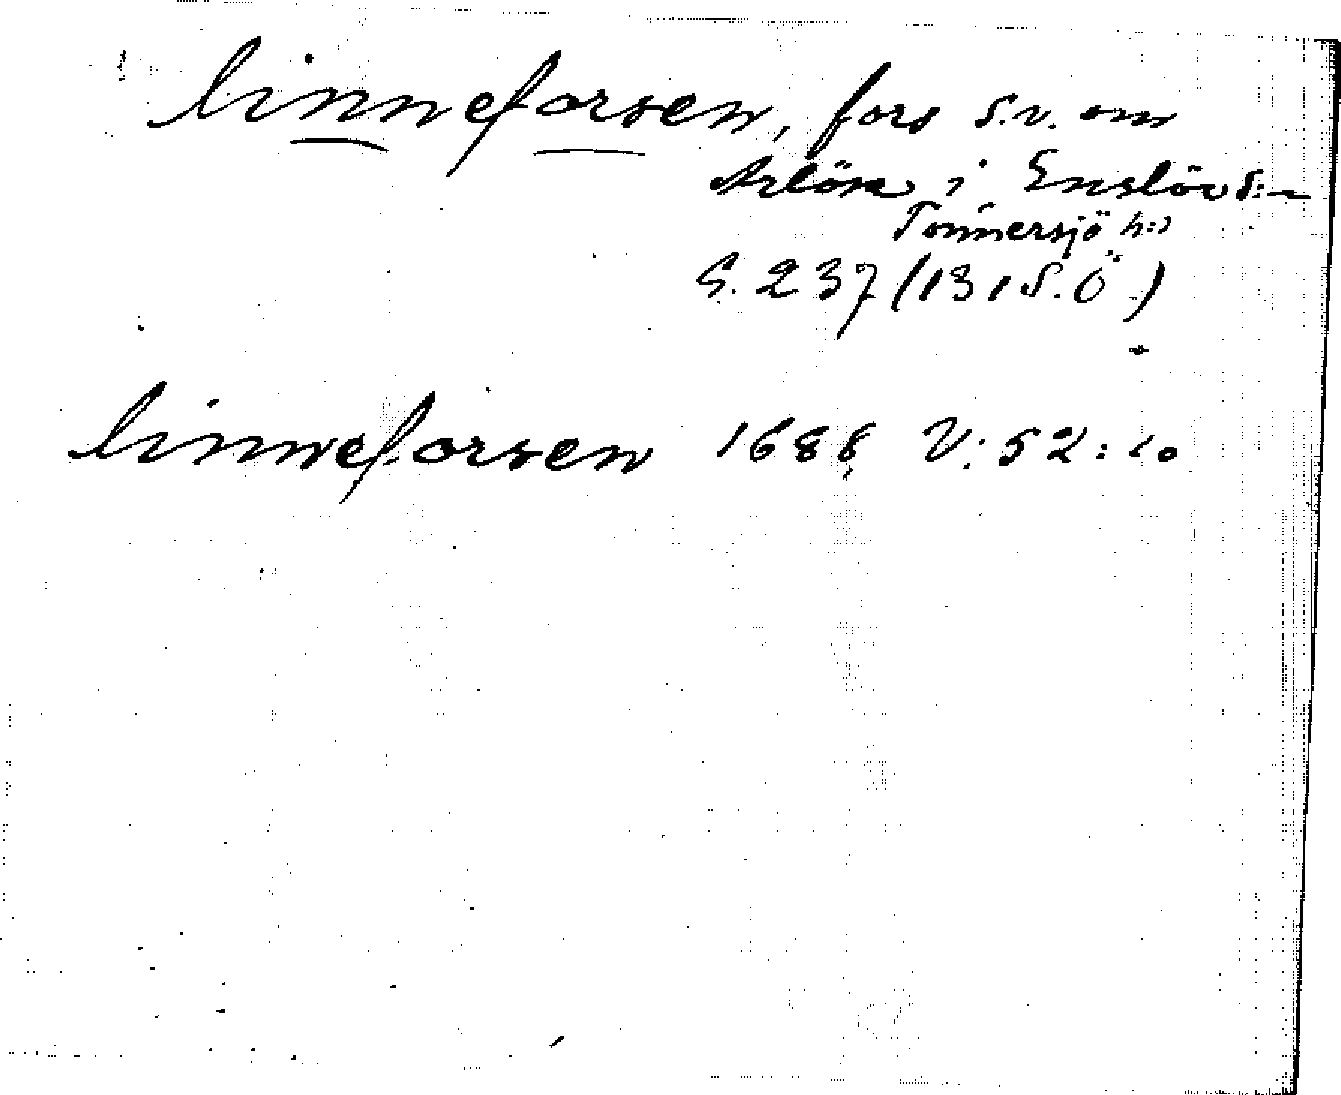 linneforsen, fors s.v. om
Arlösa i Enslöv s:n
Tönnersjö h:d
S. 237 (131 S.Ö.)
linneforsen 1688 V:52:10